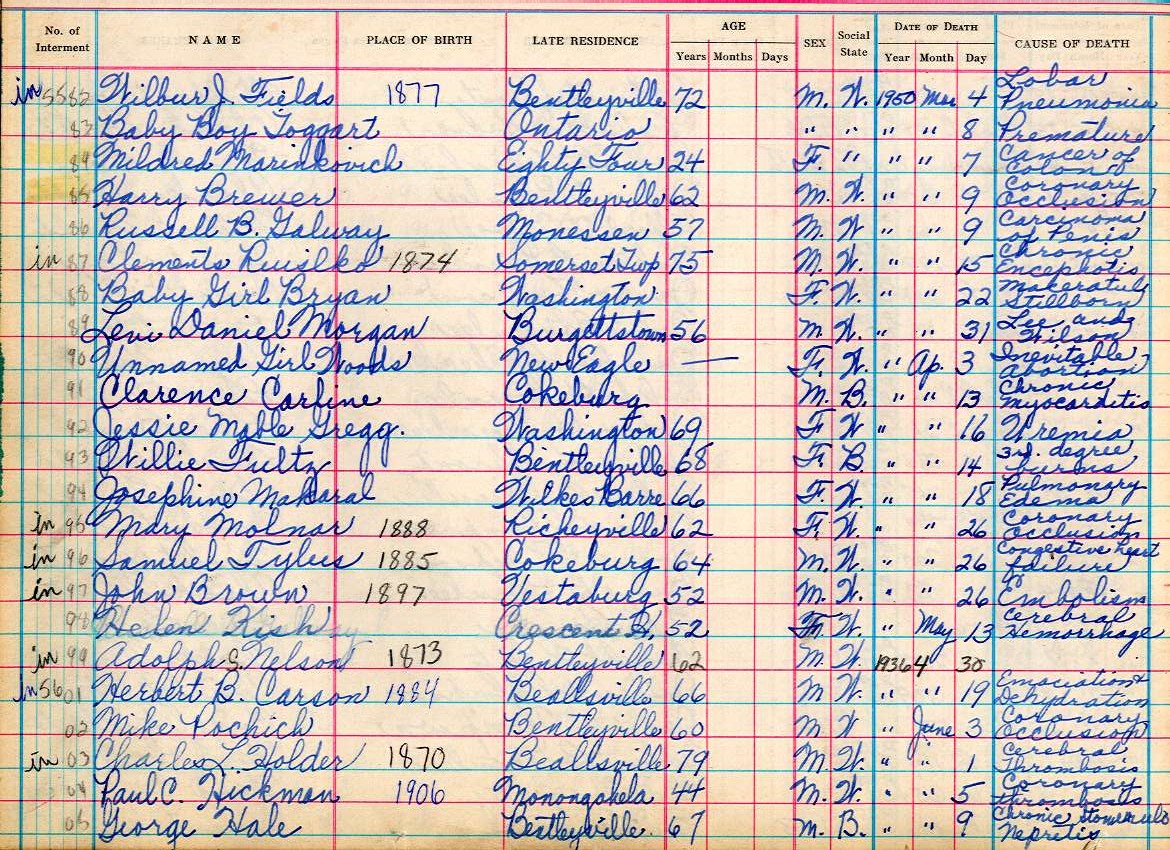 No. of Interment NAME PLACE OF BIRTH LATE RESIDENCE AGE Years Months Days SEX Social State DATE OF DEATH Year Month Day CAUSE OF DEATH
in 5582 Wilbur J. Fields 1877 Bentleyville 72 M. W. 1950 Mar. 4 Lobar Pneumonia
83 Baby Boy Toggart Ontario " " " " 8 Premature
84 Mildred Marinkovich Eighty Four 24 F. " " " 7 Cancer of Colon
85 Harry Brewer Bentleyville 62 M. W. " " 9 Coronary Occlusion
86 Russell B. Galway Monessen 57 M. W " " 9 Carcinoma of Penis
in 87 Clements 1874 Somerset Twp 75 M. W. " " 15 Chronic
88 Baby Girl Bryan Washington F. W. " " 22 Stillborn
89 Levi Daniel Morgan Burgettstown 56 M. W. " " 31
90 Unnamed Girl Woods New Eagle — F. W. " Ap. 3 Inevitable Abortion
91 Clarence Carfine Cokeburg M. B. " " 13 Chronic myocarditis
92 Jessie Mable Gregg. Washington 69 F W " " 16 Uremia
93 Willie Fultz Bentleyville 68 F. B. " " 14 3rd. degree burns
94 Josephine Makaral Wilkes Barre 66 F. W. " " 18 Pulmonary Edema
in 95 Mary Molnar 1888 Richeyville 62 F. W. " " 26 Coronary Occlusion
in 96 Samuel Tylus 1885 Cokeburg 64 M. W. " " 26 Congestive heart failure
in 97 John Brown 1897 Vestaburg 52 M. W. " " 26 Embolism
98 Helen Crescent H. 52 F. W. " May 13 Cerebral Hemorrhage
in 99 Adolph S. Nelson 1873 Bentleyville 62 M. W. 1936 4 30
In 5601 Herbert B. Carson 1884 Beallsville 66 M W " " 19 Emaciation & Dehydration
02 Mike Pochich Bentleyville 60 M W " June 3 Coronary Occlusion
in 03 Charles L. Holder 1870 Beallsville 79 M. W. " " 1 Cerebral Thrombosis
04 Paul C. Hickman 1906 Monongahela 44 M. W. " " 5 Coronary thrombosis
05 George Hale Bentleyville. 67 M. B. " " 9 Chronic